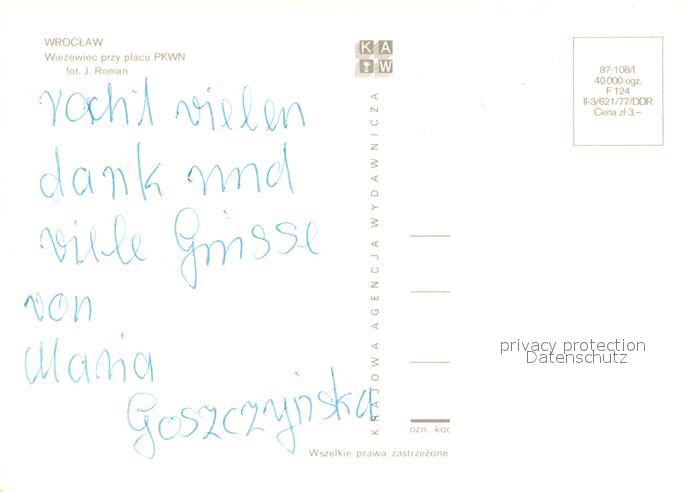 WROCŁAW
Wieżowiec przy placu PKWN
fot. J. Roman
K A
W
87-108/I
40 000 egz.
F 124
II-3/621/77/DDR
Cena zł 3.–
vielen
dank und
viele Grüsse
von
Maria
Goszczyńska
KRAJOWA AGENCJA WYDAWNICZA
privacy protection
Datenschutz
ozn. koc
Wszelkie prawa zastrzeżone